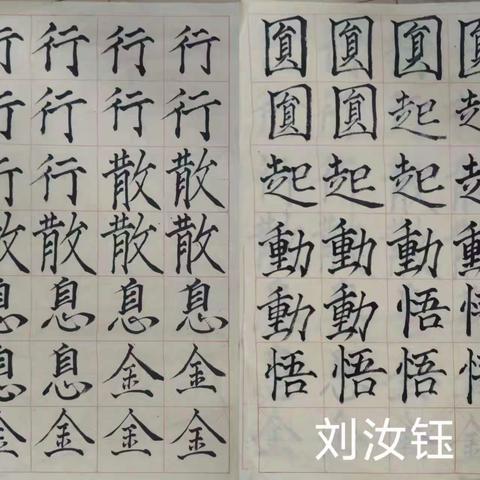 行行行行
行行行行
行行散散
散散散散
息息息息
息息金金
金金金金
圓圓圓圓
圓圓起起
起起起起
動動動動
動動悟悟
悟悟悟悟
刘汝钰